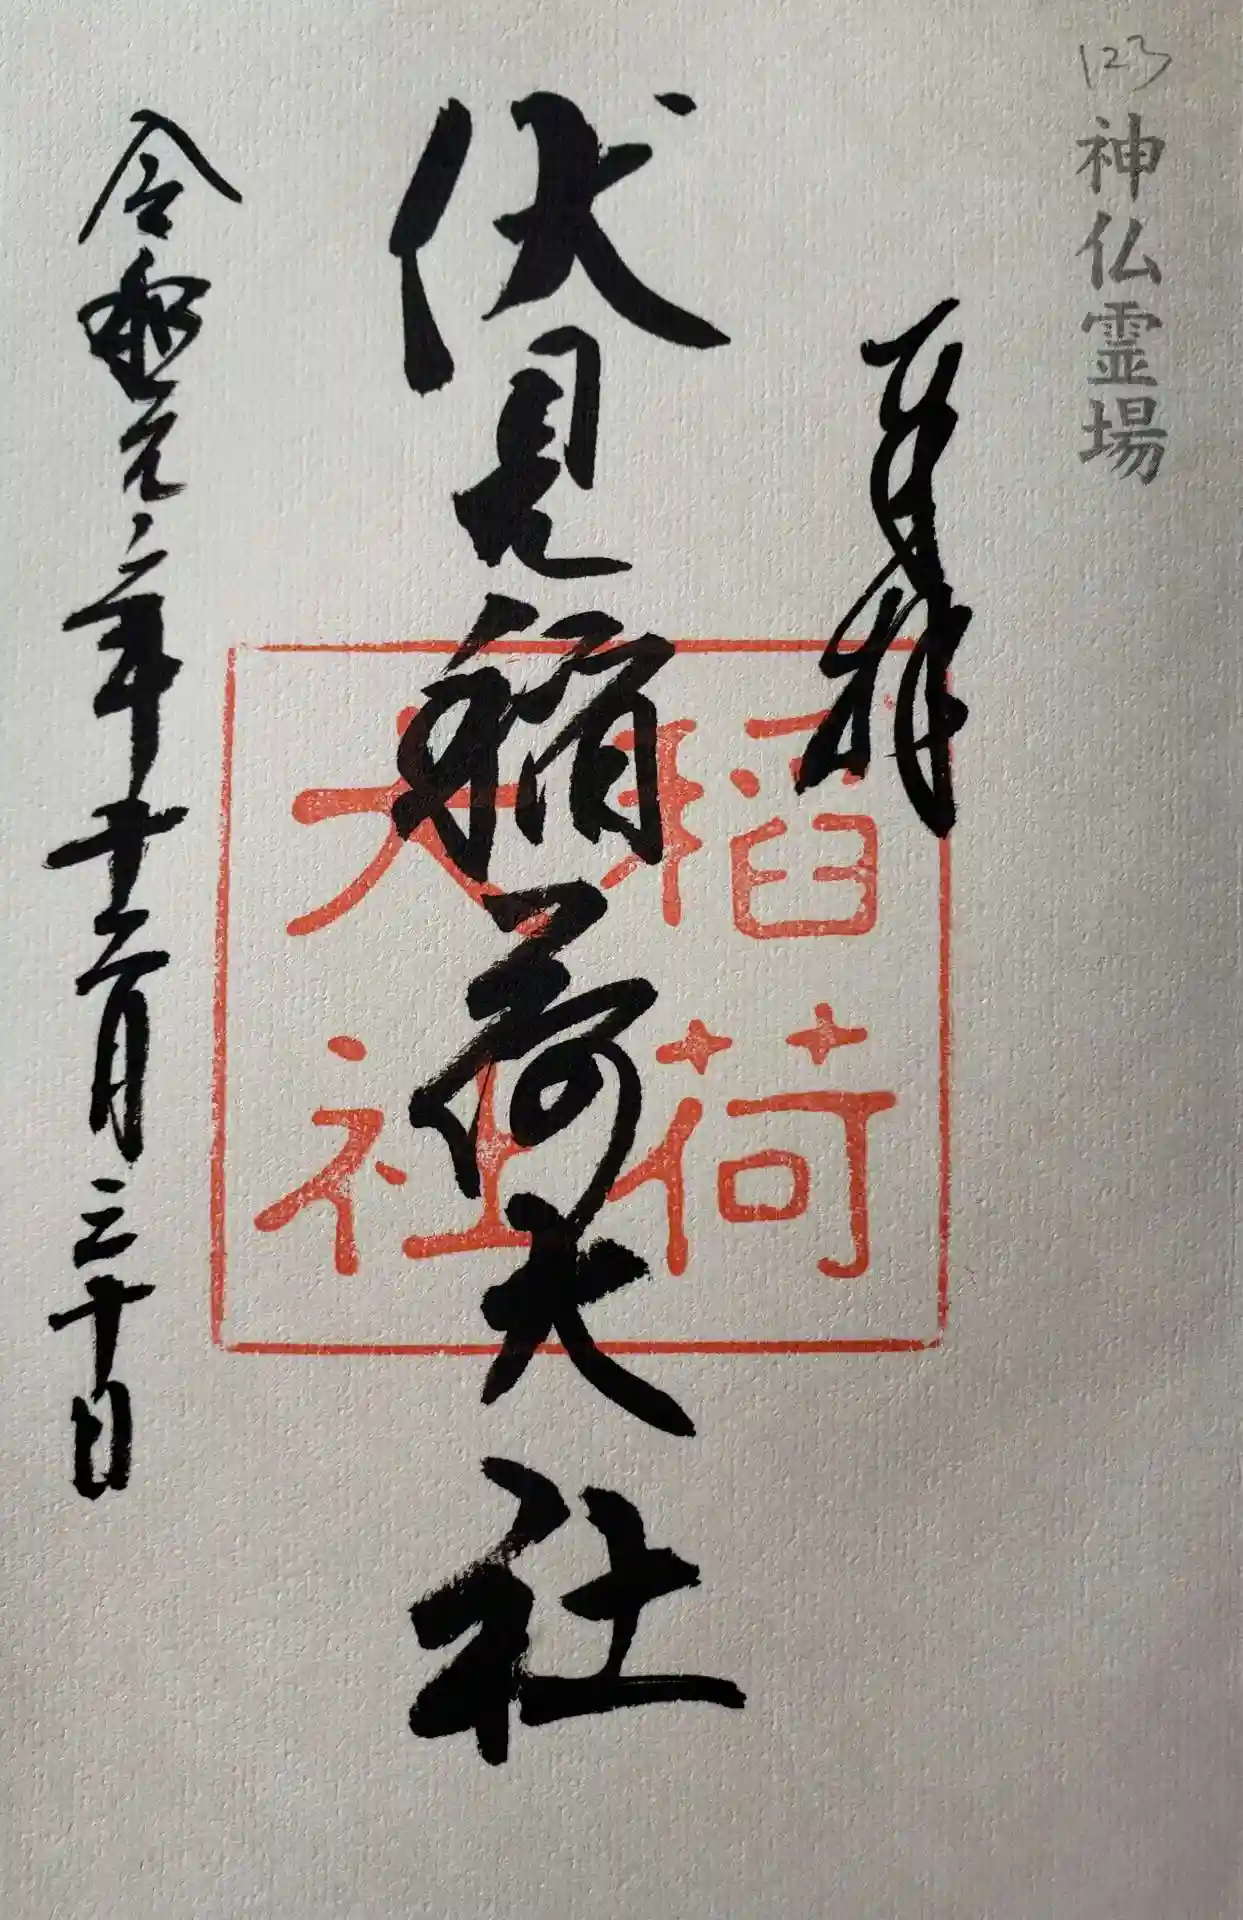 123
神仏霊場
奉拝
伏見稲荷大社
稲荷
大社
令和元年十二月三十日